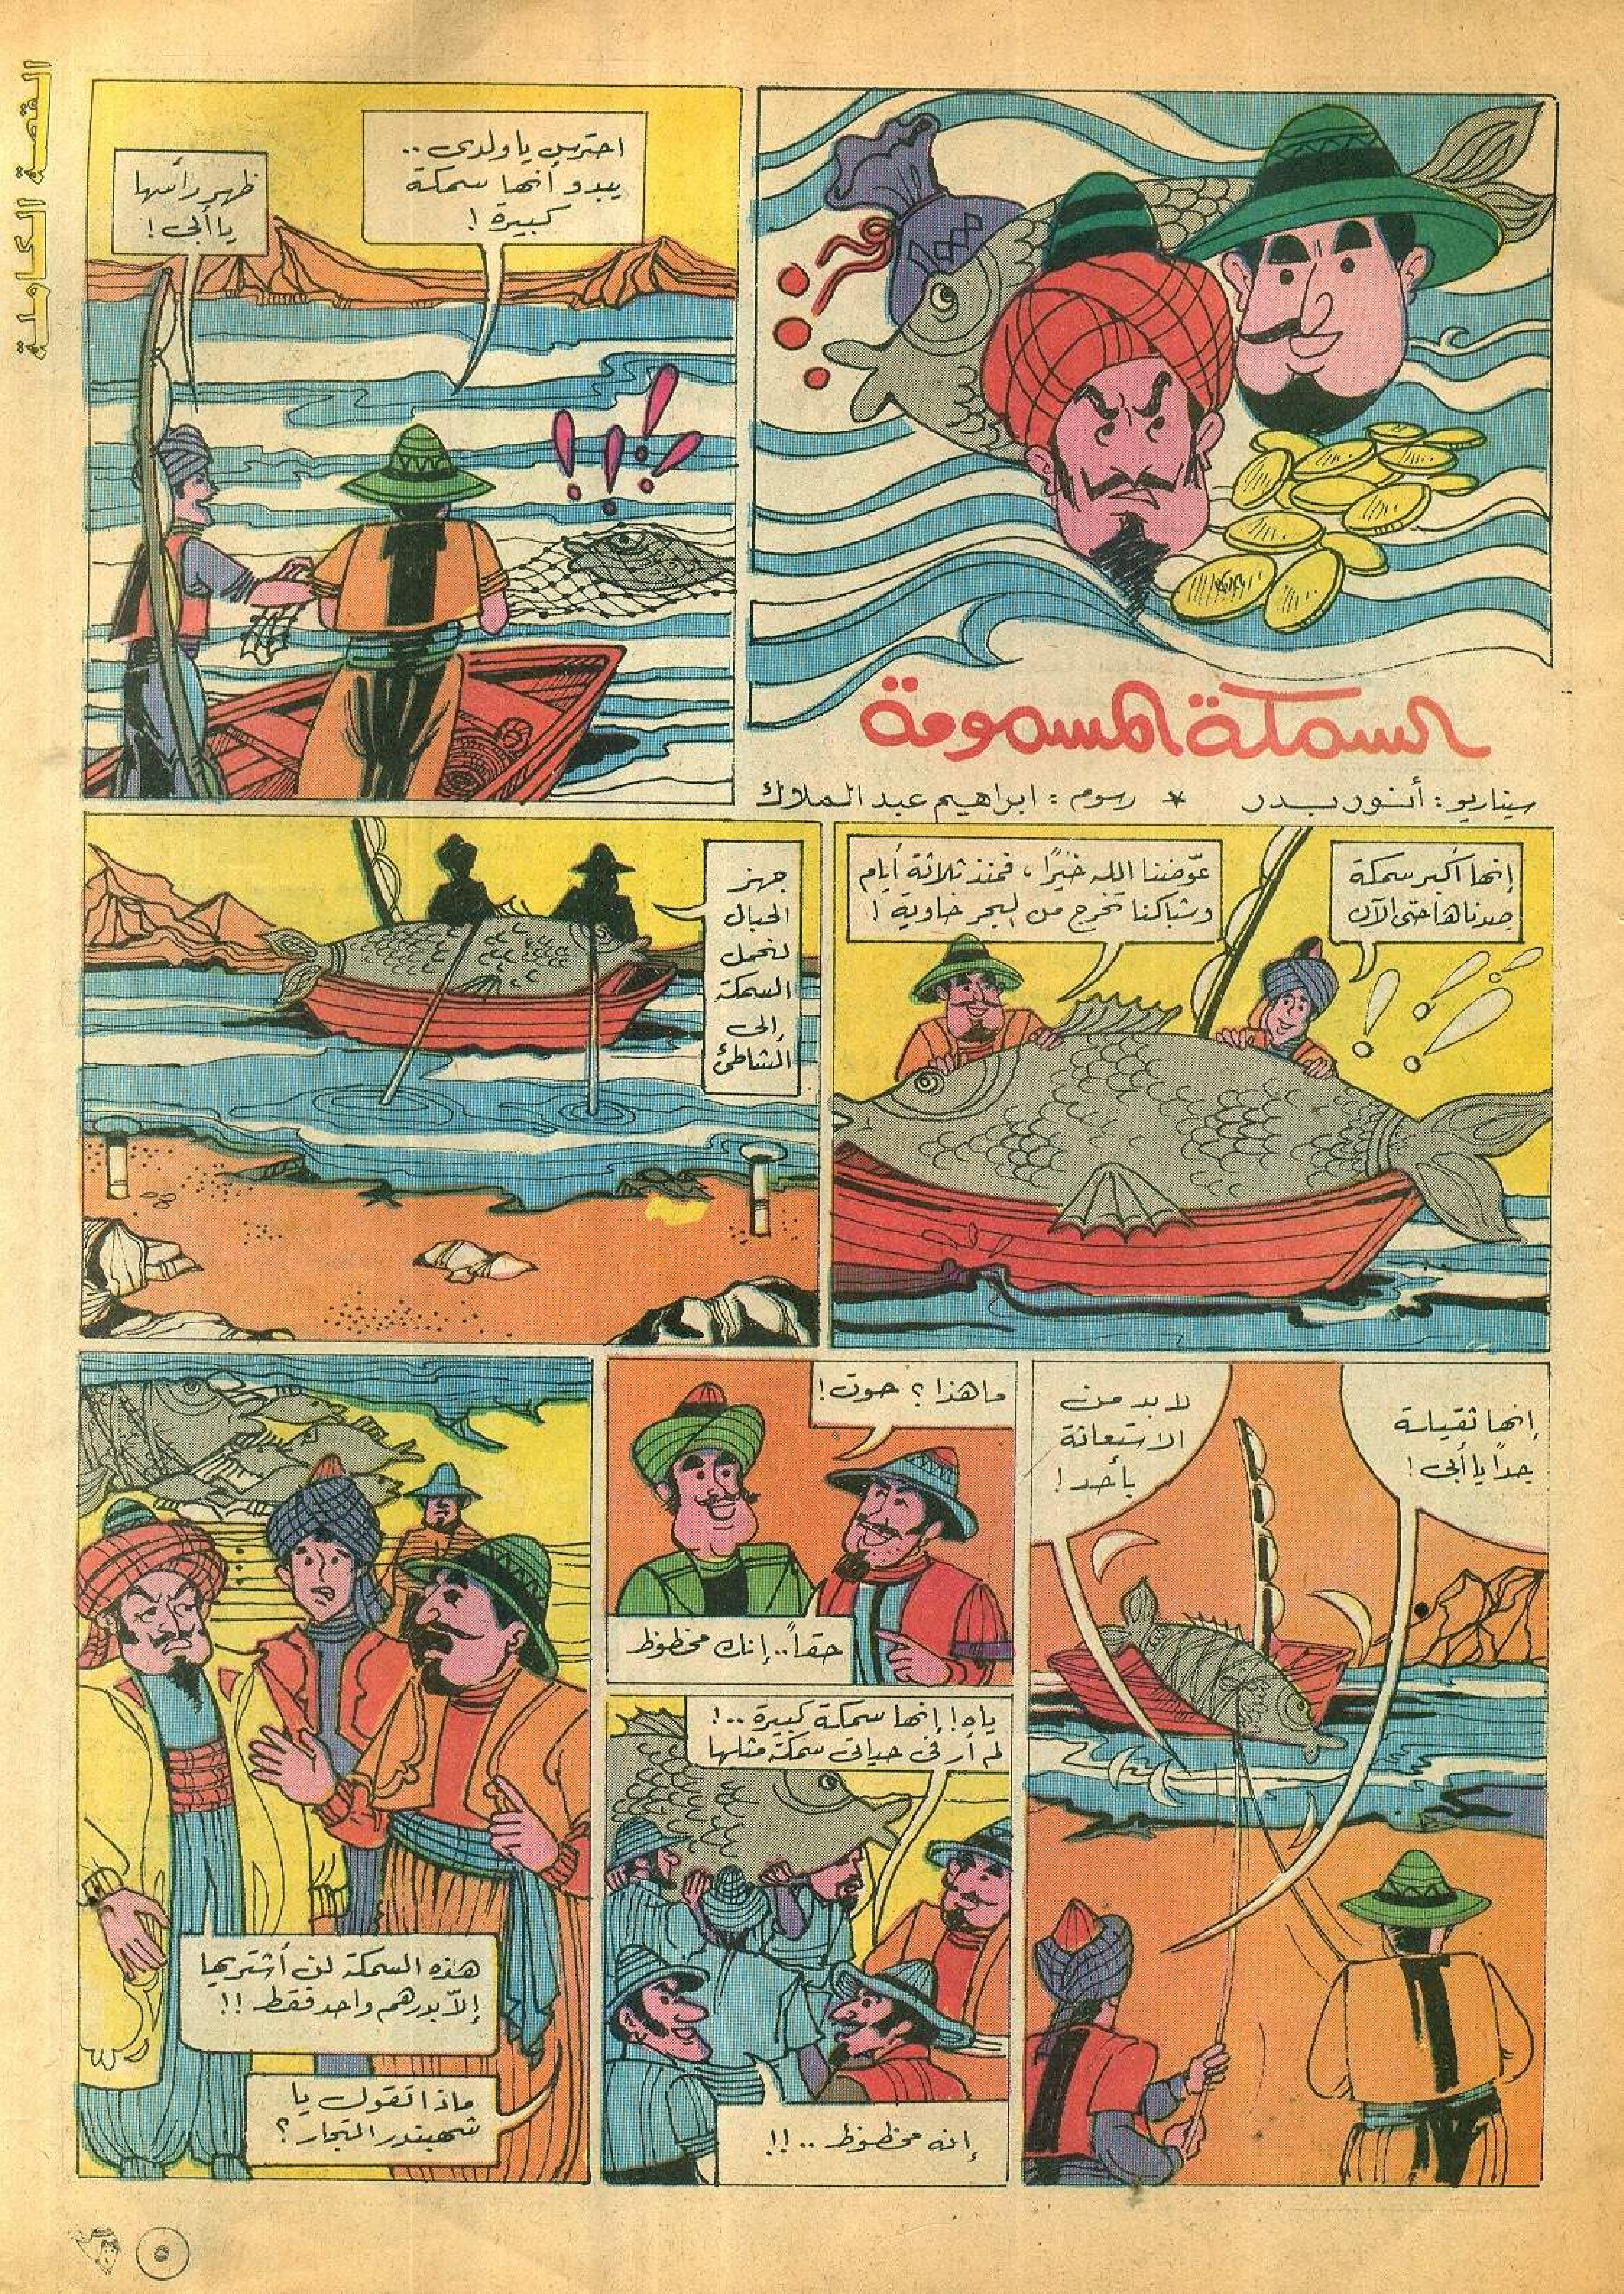 القصة الكاملة
السمكة المسمومة
سيناريو : أنور بدر * رسوم : ابراهيم عبد الملاك
احترس يا ولدى ..
يبدو أنها سمكة
كبيرة !
ظهر رأسها
يا أبى !
إنها أكبر سمكة
صدناها حتى الآن
عوّضنا الله خيرًا ، فمنذ ثلاثة أيام
وشباكنا تخرج من البحر خاوية !
جهز
الحبال
لنحمل
السمكة
إلى
الشاطئ
إنها ثقيلة
جدًا يا أبى !
لا بد من
الاستعانة
بأحد !
ما هذا ؟ حوت !
حقاً .. إنك محظوظ
ياه ! إنها سمكة كبيرة .. !
لم أر فى حياتى سمكة مثلها
إنه محظوظ .. !!
هذه السمكة لن أشتريها
إلاّ بدرهم واحد فقط !!
ماذا تقول يا
شهبندر التجار ؟
٥